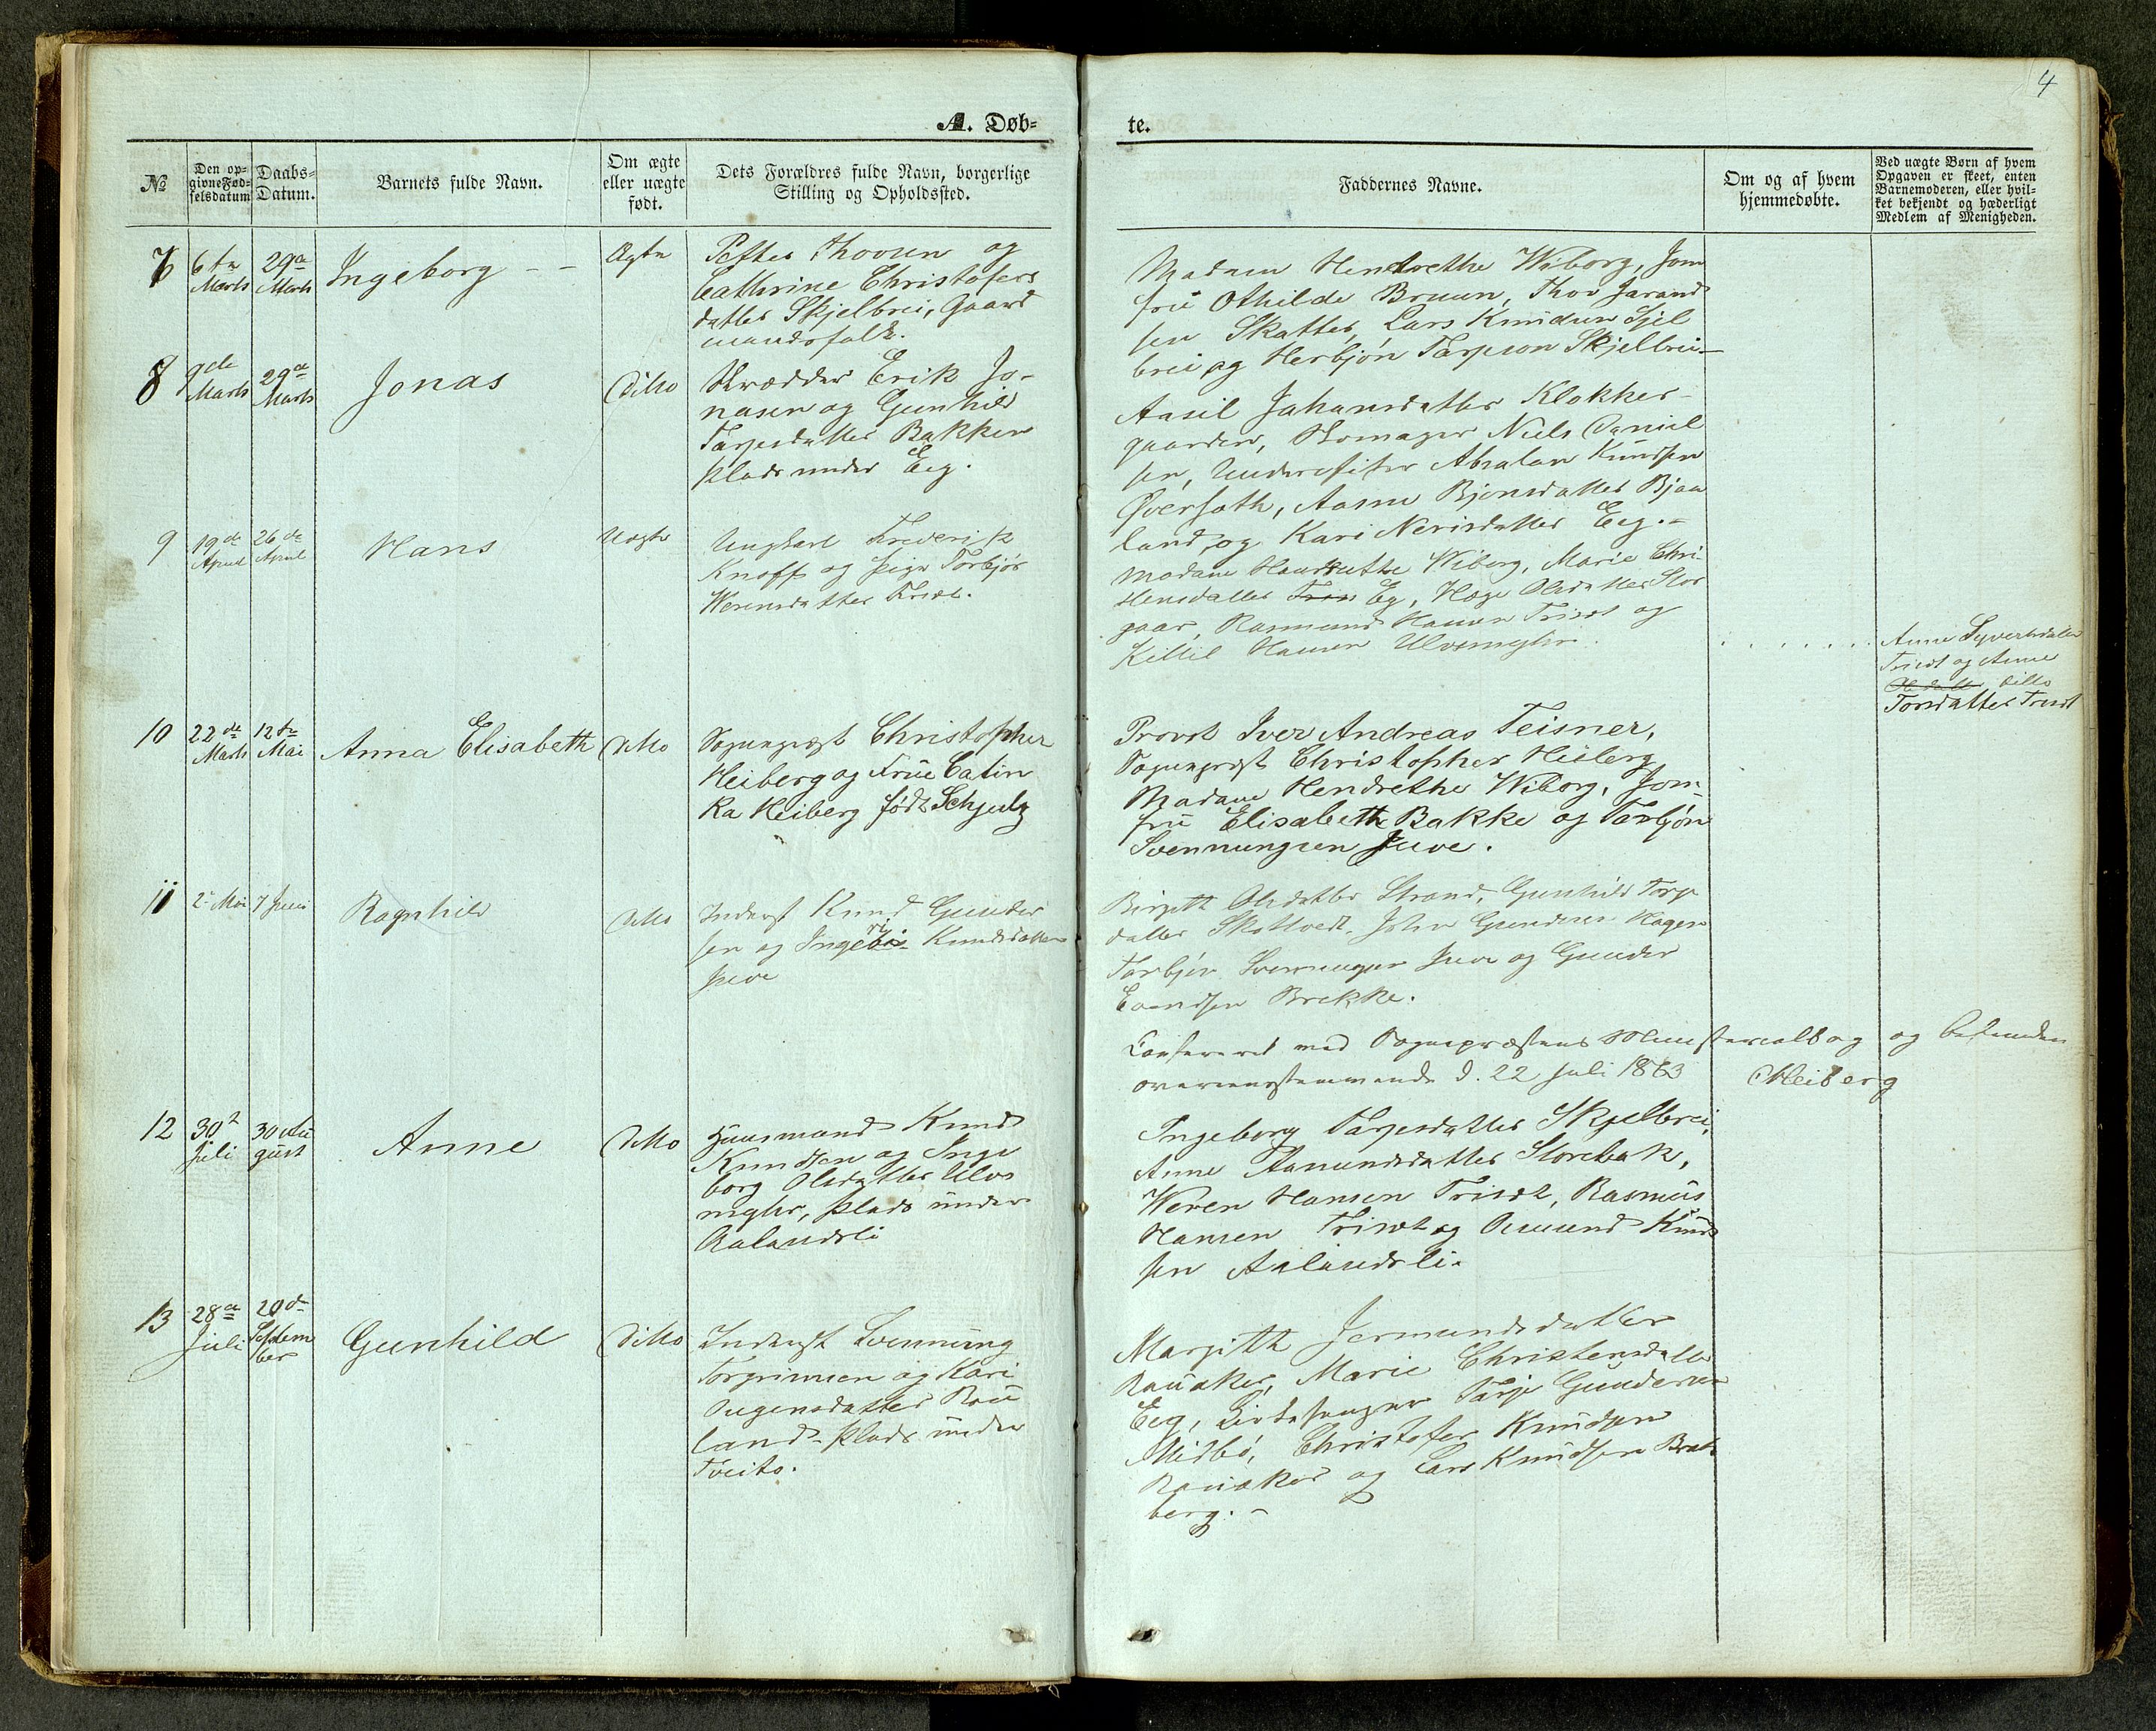 4
A. Døb-
te.
No
Den op-
givne Fød-
selsdatum
Daabs-
Datum.
Barnets fulde Navn.
Om ægte
eller uægte
født.
Dets Forældres fulde Navn, borgerlige
Stilling og Opholdssted.
Faddernes Navne.
Om og af hvem
hjemmedøbte.
Ved uægte Børn af hvem
Opgaven er skeet, enten
Barnemoderen, eller hvil-
ket bekjendt og hæderligt
Medlem af Menigheden.
7
6te
Marts
29de
Marts
Ingeborg - -
Ægte
Petter Thovsen og
Cathrine Christofers
datter Skjelbrei, Gaard
mandsfolk.
Madam Hendrethe Wiborg, Jom
fru Othilde Bruun, Thov Jarand
sen Skatter, Lars Knudsen Sjel
brei og Herbjön Tarjeson Skjelbrei -
8
9de
Marts
29de
Marts
Jonas
Ditto
Skrædder Erik Jo-
nasen og Gunhild
Tarjesdatter Bakken
Plads under Eeg.
Aasil Johansdatter Klokker-
gaarden, Skomager Niels Daniel
sen, Underofficer Absalon Knudsen
Øversath, Aasne Bjonsdatter Bjaa
land, og Kari Nerisdatter Eeg. -
9
19de
April
26de
April
Hans
Uægte
Ungkarl Frederik
Knoff og Pige Torbjør
Werensdatter Trisæt.
Madam Hendrethe Wiborg, Marie Chri
stensdatter Eg, Hæge Olsdatter Stor
gaar, Rasmund Hansen Trisæt og
Kittil Hansen Ulvsneglen
. . . . . . .
Anne Syvertsdatter
Trisæt og Anne
Olsdatt ditto
Torsdatter Trisæt
10
22de
Marts
12te
Mai
Anna Elisabeth
Ditto
Sognepræst Christopher
Heiberg og Frue Catin
ka Heiberg født Schjelz
Provst Iver Andreas Teisner,
Sognepræst Christopher Heiberg
Madam Hendrethe Wiborg, Jom-
fru Elisabeth Bakke og Torbjön
Svennungsen Juve.
11
2 Mai
7 Juni
Ragnhild
Ditto
Inderst Knud Gunder
sen og Ingeborg Knudsdatter
Juve
Birgith Olsdatter Strand, Gunhild Tarje
datter Skottvedt, John Gundersen Hagen
Torbjön Svennungsen Juve og Gunder
Evendsen Brekke.
Confereret med Sognepræstens Ministerialbog og befunden
overensstemmende d. 22 Juli 1863 CHeiberg
12
30te
Juli
30 Au
gust
Anne
Ditto
Huusmand Knud
Knudsen og Inge
borg Olsdatter Ulvs
neglen, Plads under
Aalandsli
Ingeborg Tarjesdatter Skjelbrei,
Anne Aamundsdatter Storebak,
Weren Hansen Trisæt, Rasmus
Hansen Trisæt og Aamund Knud
sen Aalandsli.
13
28de
Juli
20de
Septem
ber
Gunhild
Ditto
Inderst Svennung
Torgrimsen og Kari
Augensdatter Rau
land - Plads under
Tveito.
Margith Jermundsdatter
Rauaker, Marie Christensdatter
Eeg, Kirkesanger Tarje Gundersen
Midbø, Christofer Knudsen
Rauaker og Lars Knudsen Brat
berg. -